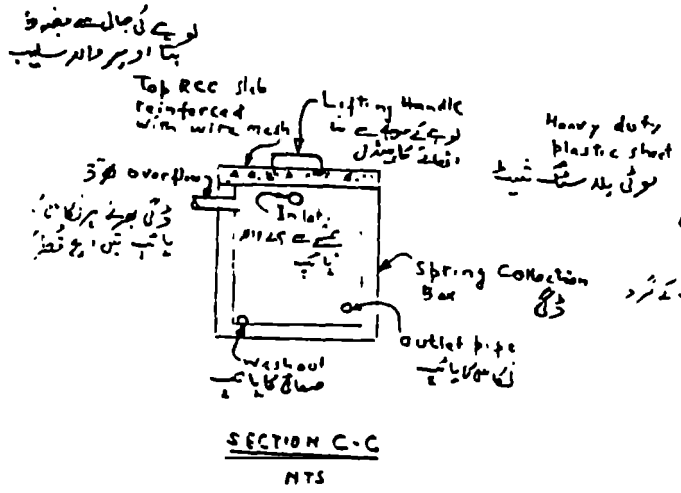 لوہے کی جالی سے مضبوط
بنا اوپر والا سلیب
Top RCC slab
reinforced
with wire mesh
Lifting Handle
لوہے کے
اٹھانے کا ہینڈل
Heavy duty
plastic sheet
موٹی پلاسٹک شیٹ
3"Ø overflow
ڈگی بھرنے پر نکاسی کا
پائپ تین انچ قطر
Inlet
چشمے سے
پائپ
Spring Collection
Box
ڈگی
کے گرد
outlet pipe
نکاسی کا پائپ
washout
صفائی کا پائپ
SECTION C-C
NTS